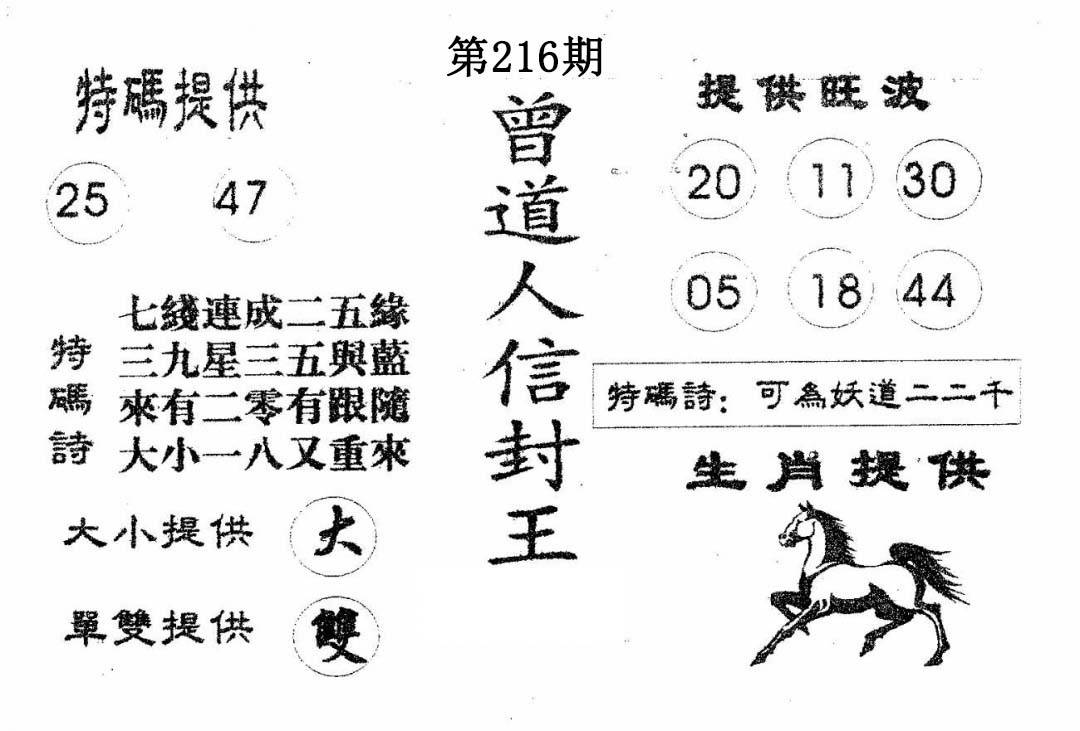 第216期
特碼提供
25 47
七綫連成二五緣
三九星三五與藍
來有二零有跟隨
大小一八又重來
特碼詩
大小提供 大
單雙提供 雙
曾道人信封王
提供旺波
20 11 30
05 18 44
特碼詩：可為妖道二二千
生肖提供